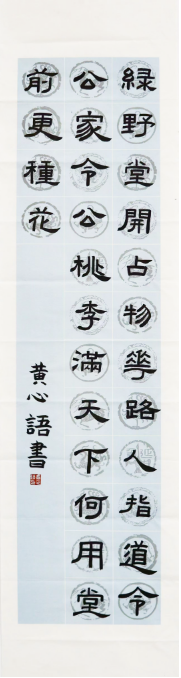 綠野堂開占物華路人指道令
公家令公桃李滿天下何用堂
前更種花
黃心語書